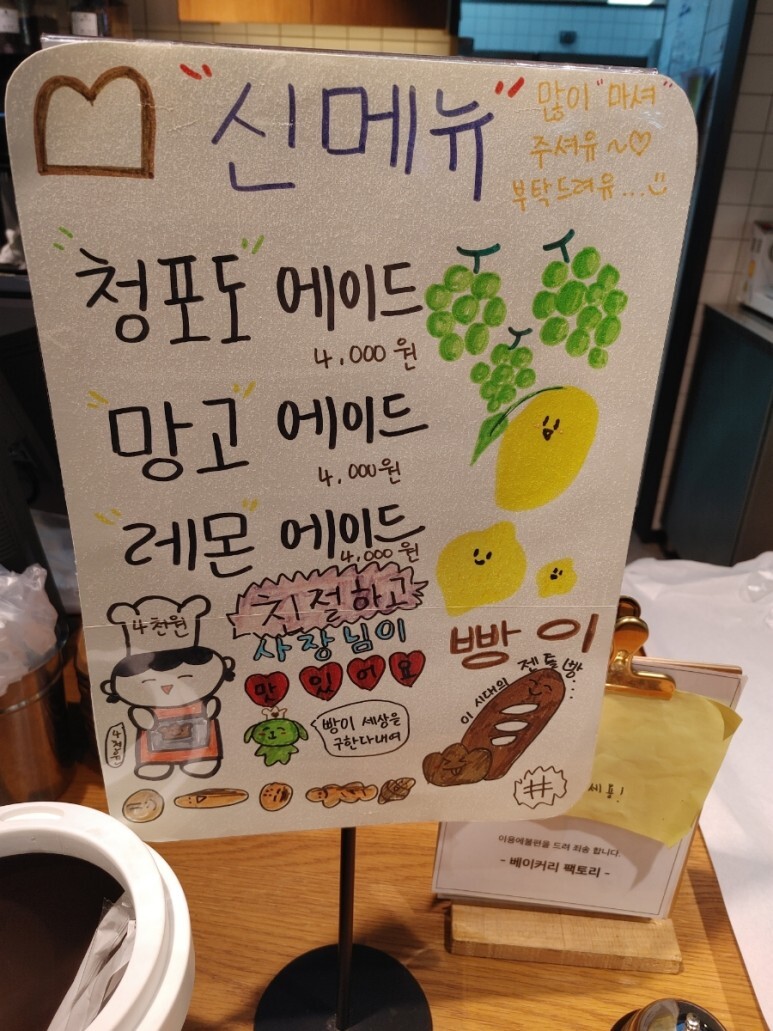 "신메뉴"
많이 "마셔"
주셔유~♡
부탁드려유...
"청포도" 에이드
4,000원
"망고" 에이드
4,000원
"레몬" 에이드
4,000원
친절하고
사장님이
맛있어요
4천원
빵이
이 시대의 젠틀빵...
빵이 세상을
구한다내여
#
세용!
이용에불편을 드려 죄송 합니다.
- 베이커리 팩토리 -